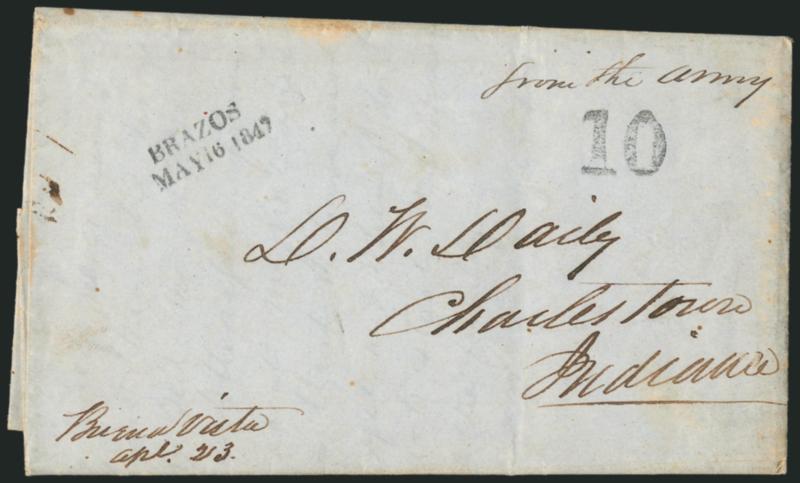 from the army
BRAZOS
MAY 16 1847
10
D. W. Daily
Charlestown
Indiana
Buena Vista
apl. 23.